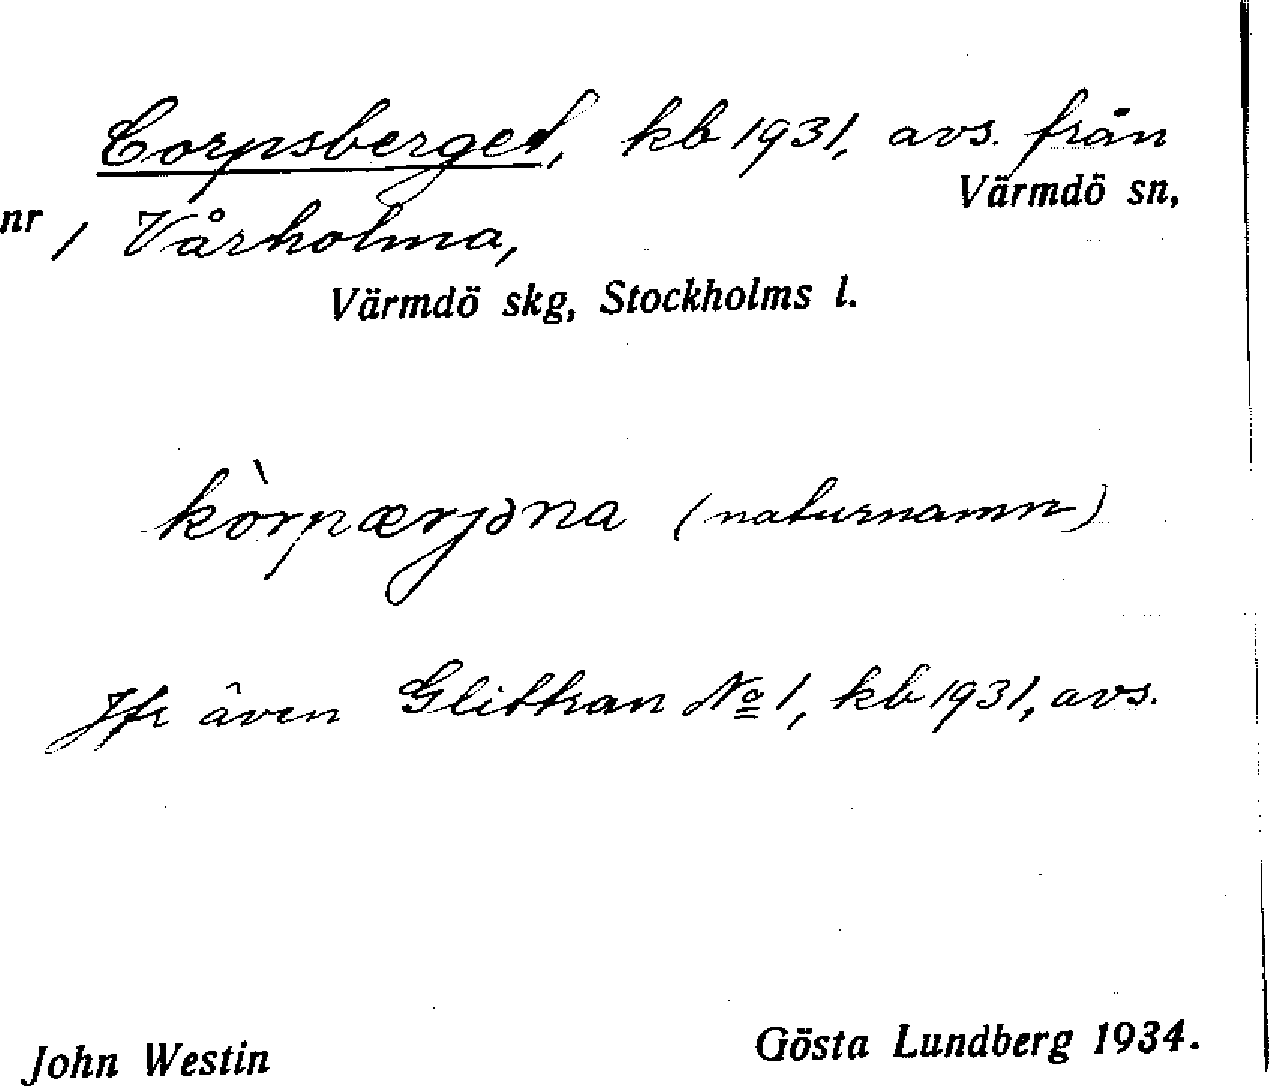 Corpsberget, kb 1931, avs. från
Värmdö sn,
nr 1 Vårholma,
Värmdö skg, Stockholms l.
kòrpærjəna (naturnamn)
Jfr även Glitkan No 1, kb 1931, avs.
John Westin
Gösta Lundberg 1934.